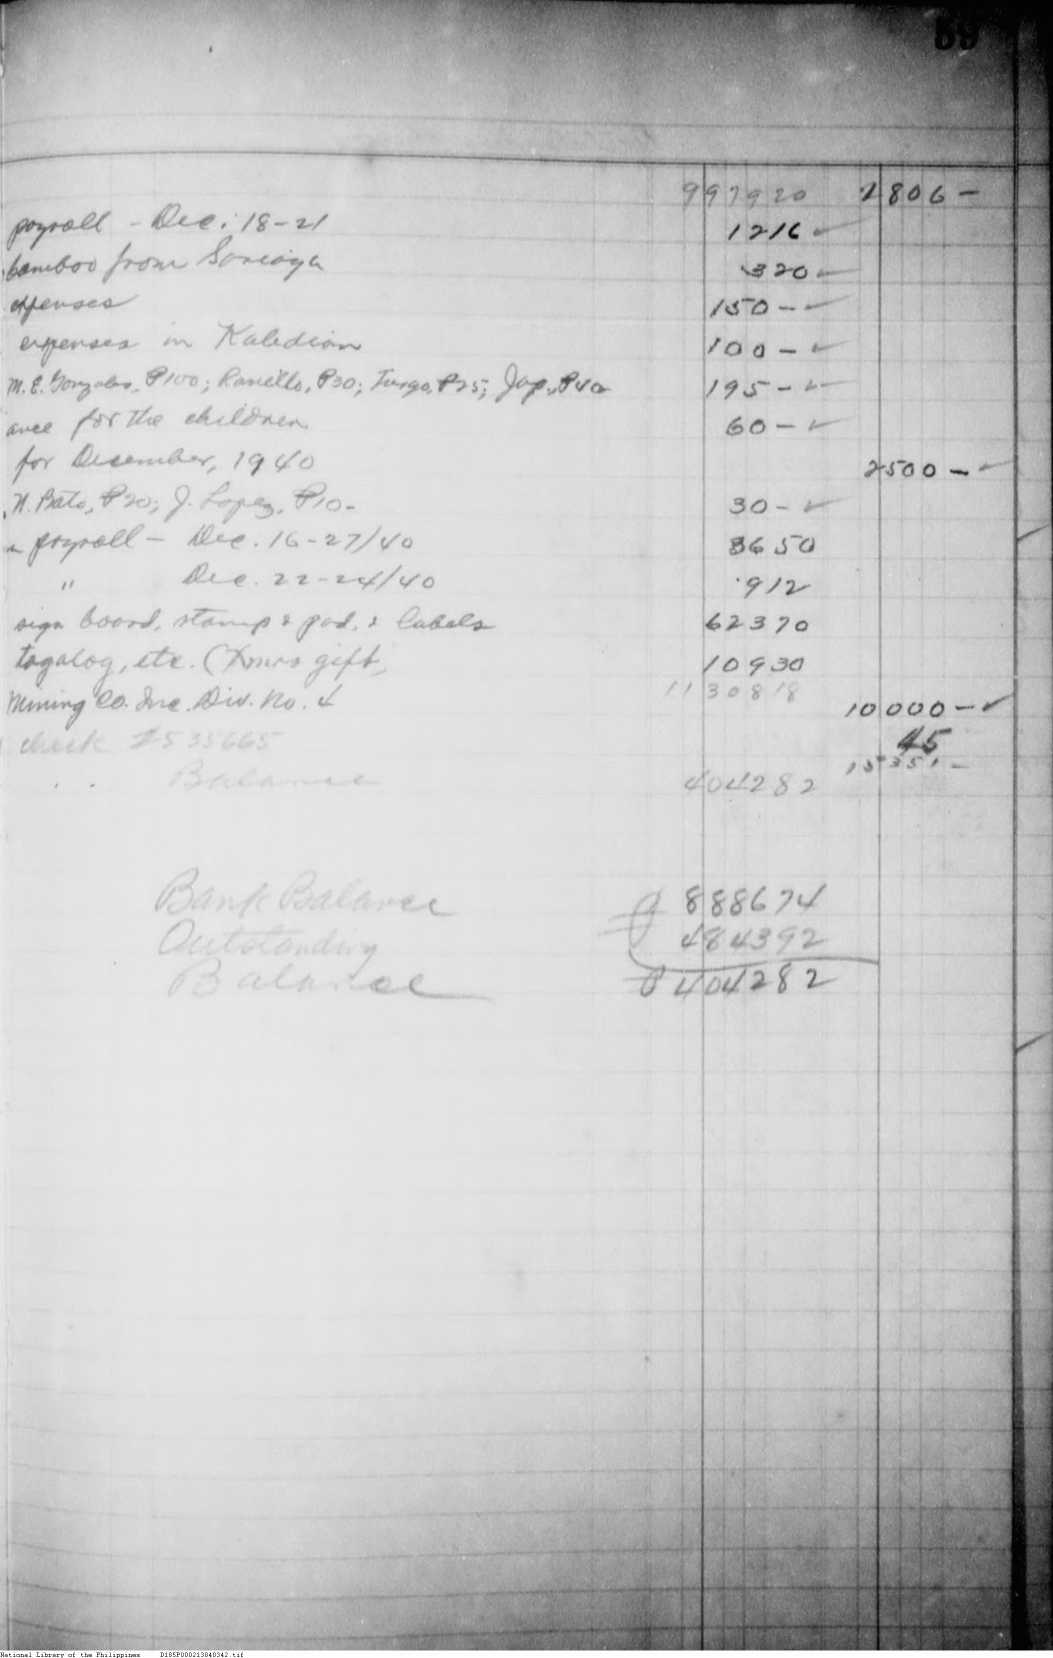 69
997920 2806 -
payroll - Dec. 18-21 1216
bamboo from Soriaga 320
expenses 150 -
expenses in Kaledian 100 -
M. E. Gonzales, ₱100; Ranillo, ₱30; Turgo, ₱25; Jap., ₱40 195 -
ance for the children 60 -
for December, 1940 2500 -
N. Bato, ₱20; J. Lopez, ₱10- 30 -
payroll - Dec. 16-27/40 3650
" Dec. 22-24/40 912
sign board, stamp & pad, & labels 62370
tagalog, etc. (Xmas gift) 10930
1130818
Mining Co. Inc. Div. No. 4 10000 -
check 2535665 45
15351 -
Balance 404282
Bank Balance ₱ 888674
Outstanding 484392
Balance ₱ 404282
National Library of the Philippines D185P000213840342.tif